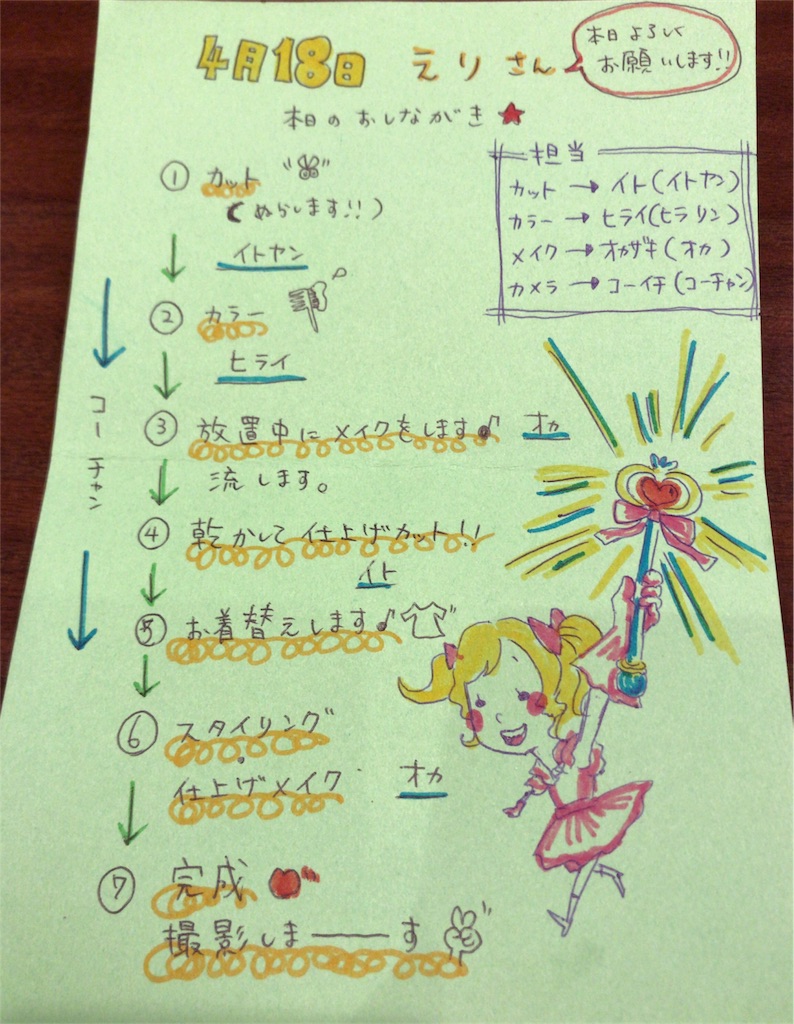 4月18日 えりさん
本日よろしく
お願いします!!
本日のおしながき★
担当
カット→イト(イトヤン)
カラー→ヒライ(ヒラリン)
メイク→オカザキ(オカ)
カメラ→コーイチ(コーチャン)
① カット
(ぬらします!!)
↓ イトヤン
② カラー
↓ ヒライ
③ 放置中にメイクをします♪ オカ
↓ 流します。
④ 乾かして仕上げカット!!
↓ イト
⑤ お着替えします♪
↓
⑥ スタイリング
・
仕上げメイク オカ
↓
⑦ 完成
撮影しま――す
↓
コーチャン
↓